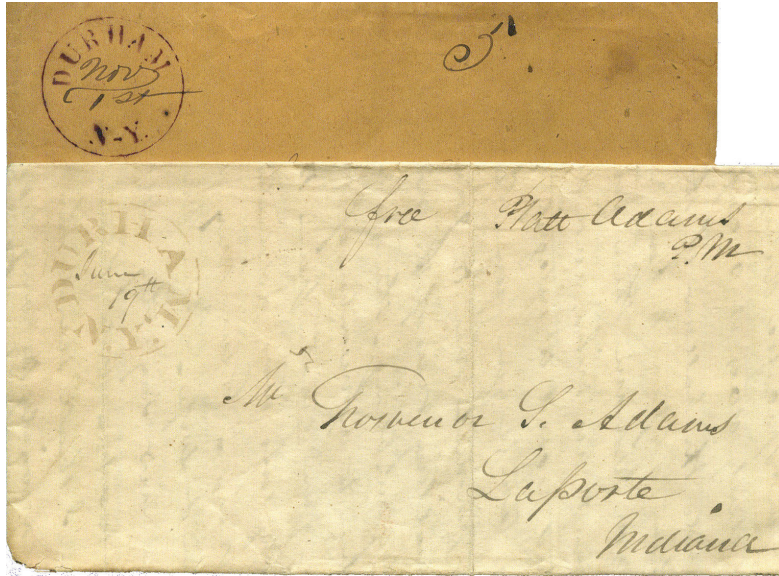 DURHAM
Nov
1st
N-Y.
5
DURHAM
N.Y.
June
19th
free Platt Adams
P.M
Mr Grosvenor S. Adams
Laporte
Indiana